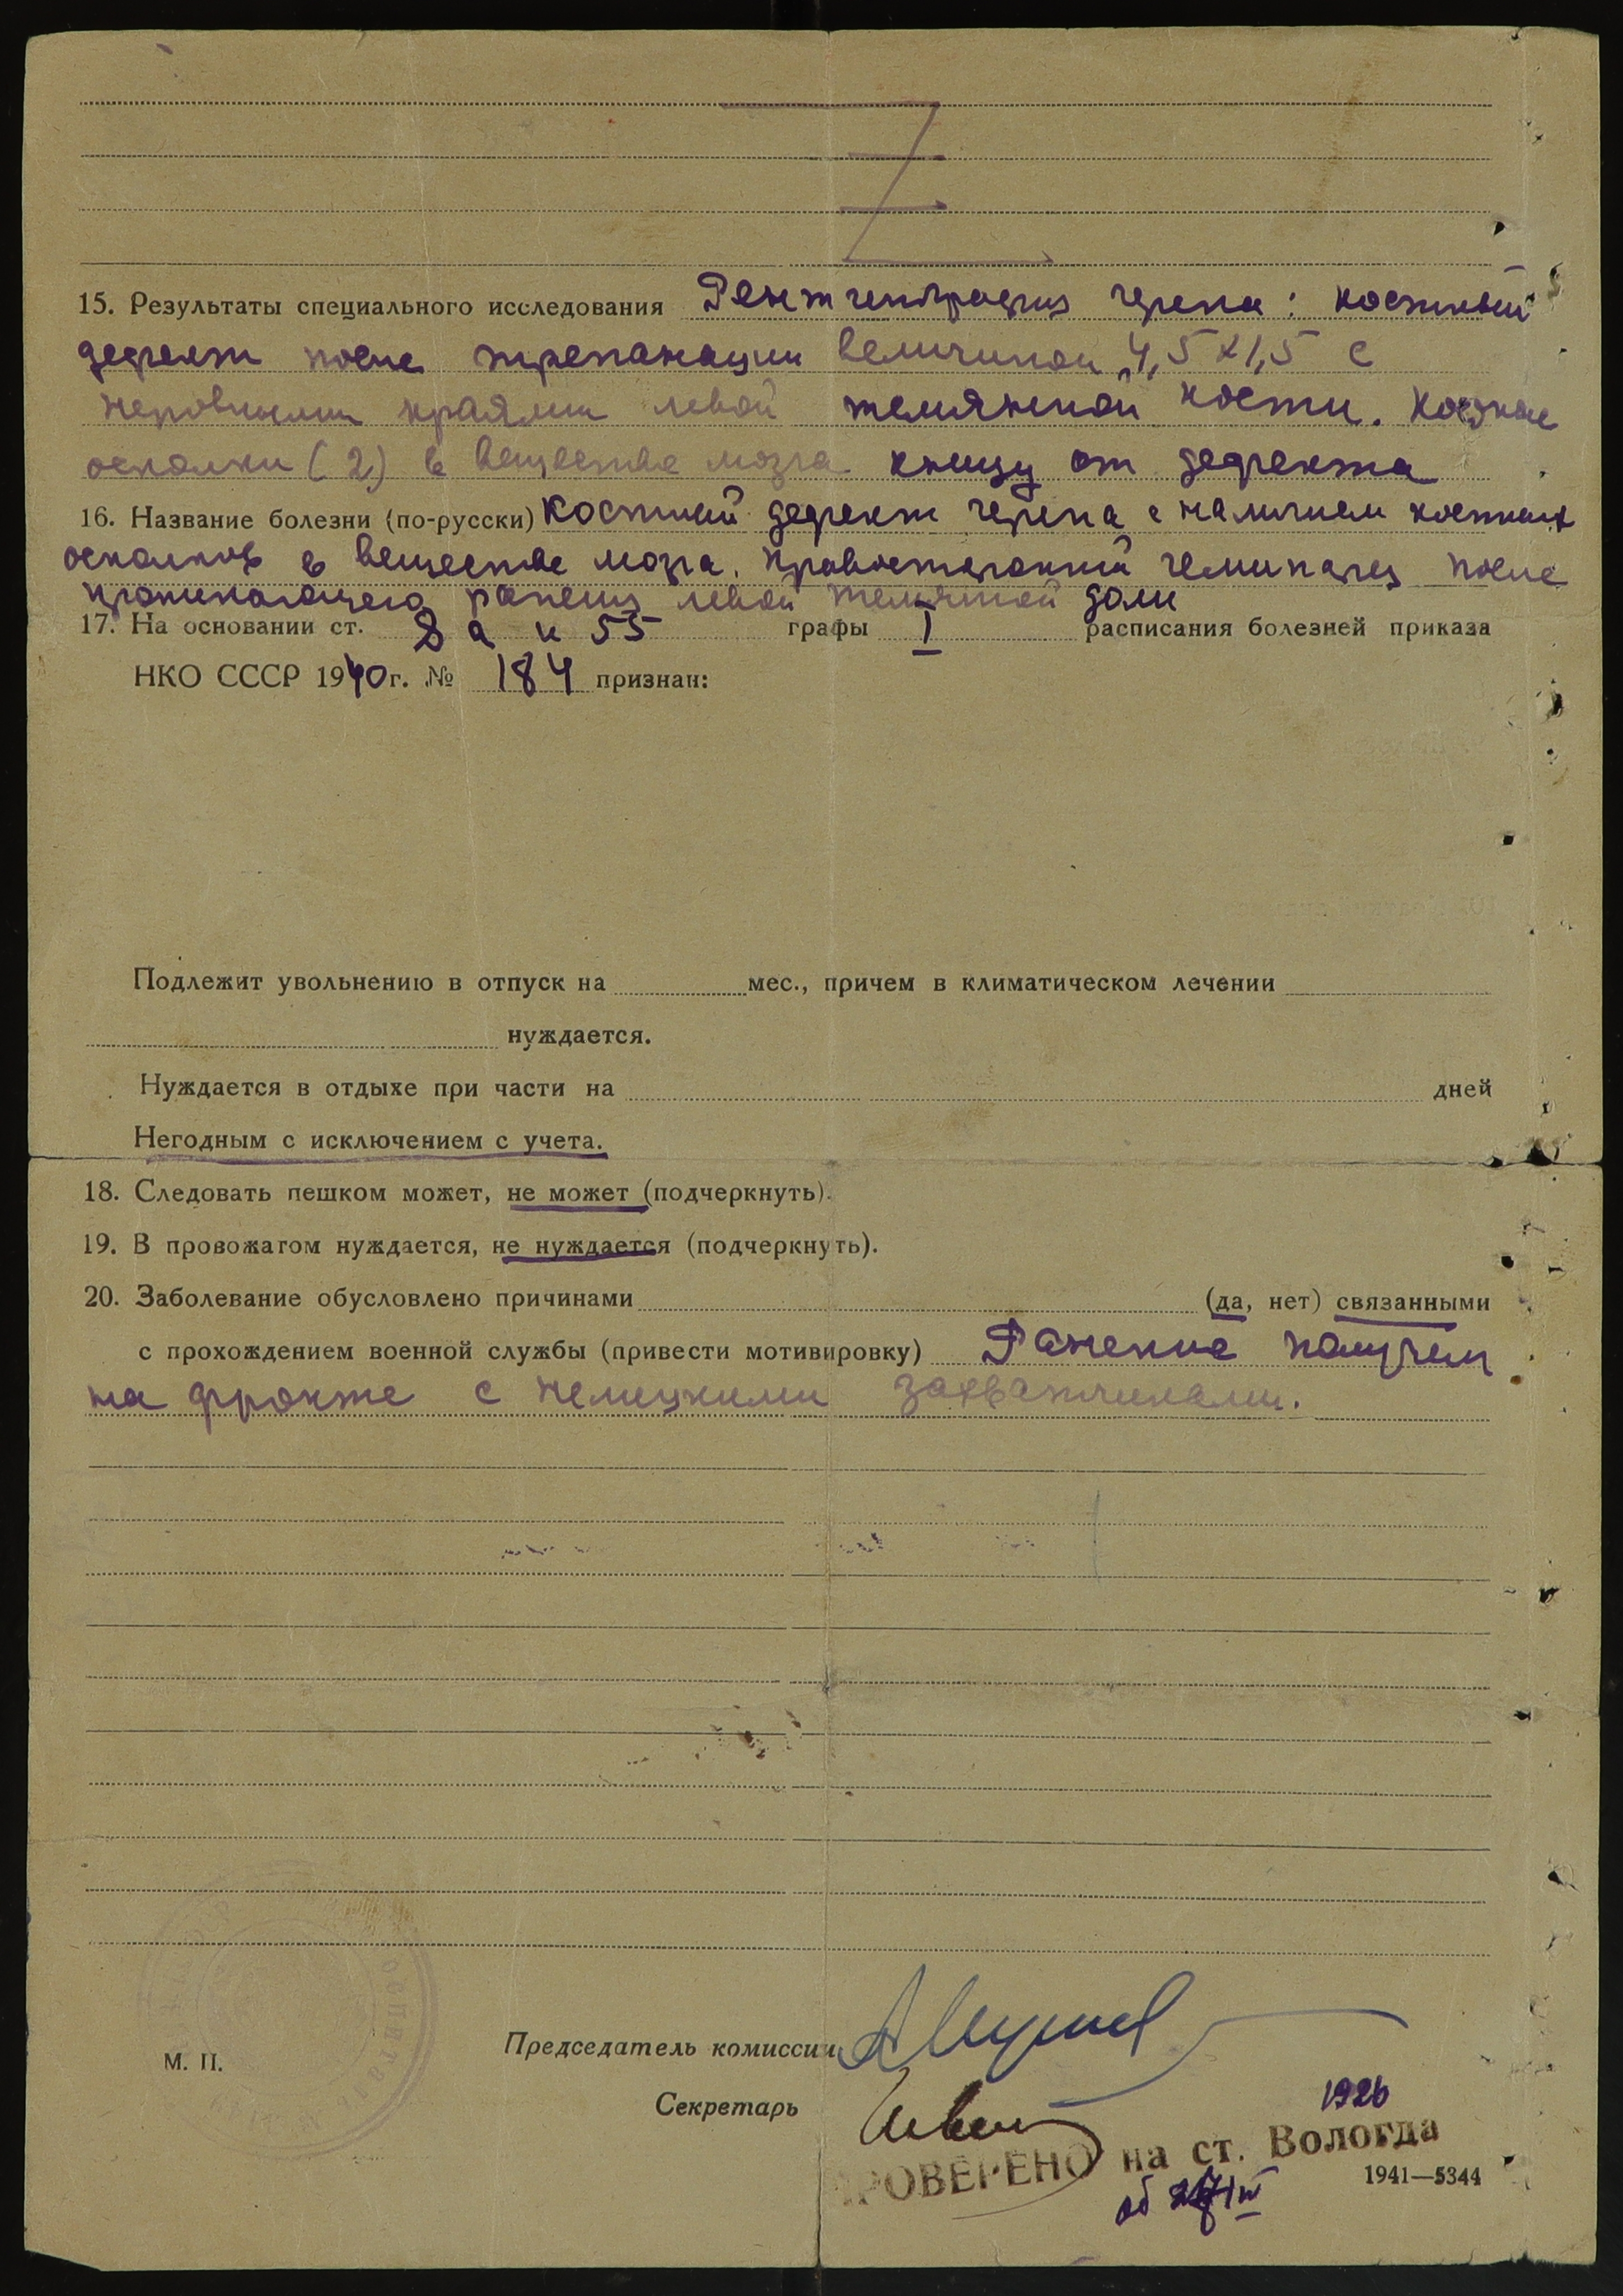 15. Результаты специального исследования Рентгенография черепа: костный
дефект после трепанации величиной 4,5х1,5 с
неровными краями левой теменной кости. Костные
осколки (2) в веществе мозга книзу от дефекта
16. Название болезни (по-русски) Костный дефект черепа с наличием костных
осколков в веществе мозга. Правосторонний гемипарез после
проникающего ранения левой теменной доли
17. На основании ст. 8 а и 55 графы I расписания болезней приказа
НКО СССР 1940 г. № 184 признан:
Подлежит увольнению в отпуск на мес., причем в климатическом лечении
нуждается.
Нуждается в отдыхе при части на дней
Негодным с исключением с учета.
18. Следовать пешком может, не может (подчеркнуть).
19. В провожатом нуждается, не нуждается (подчеркнуть).
20. Заболевание обусловлено причинами (да, нет) связанными
с прохождением военной службы (привести мотивировку) Ранение получил
на фронте с немецкими захватчиками.
М. П.
Председатель комиссии
Секретарь
1926
ПРОВЕРЕНО на ст. Вологда
1941—5344